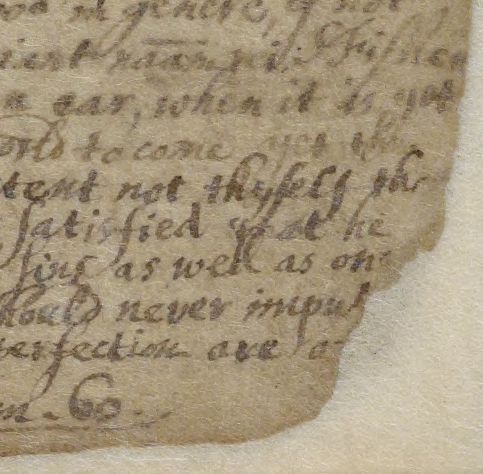 in genere, if not
a ear, when it is yet
to come, yet th
tent not thyself th
satisfied that he
sins as well as one
hould never imput
perfection are a
m. 60.